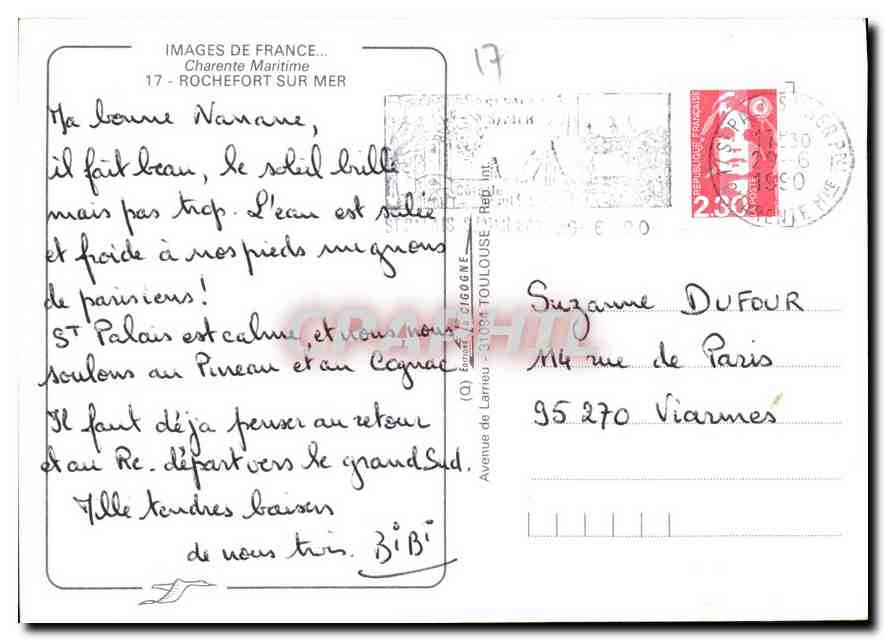 IMAGES DE FRANCE...
Charente Maritime
17 - ROCHEFORT SUR MER
Ma bonne Nanane,
il fait beau, le soleil brille
mais pas trop. L'eau est salée
et froide à nos pieds mignons
de parisiens !
ST Palais est calme, et nous nous
soulons au Pineau et au Cognac.
Il faut déja penser au retour
et au Re-départ vers le grand Sud.
Mille tendres baisers
de nous trois. BiBi
(Q) Editions La CIGOGNE
Avenue de Larrieu - 31094 TOULOUSE Rep. Int.
17
REPUBLIQUE FRANÇAISE
2.30
LA POSTE
17-30
1990
Suzanne DUFOUR
114 rue de Paris
95270 Viarmes
CPAPHIL